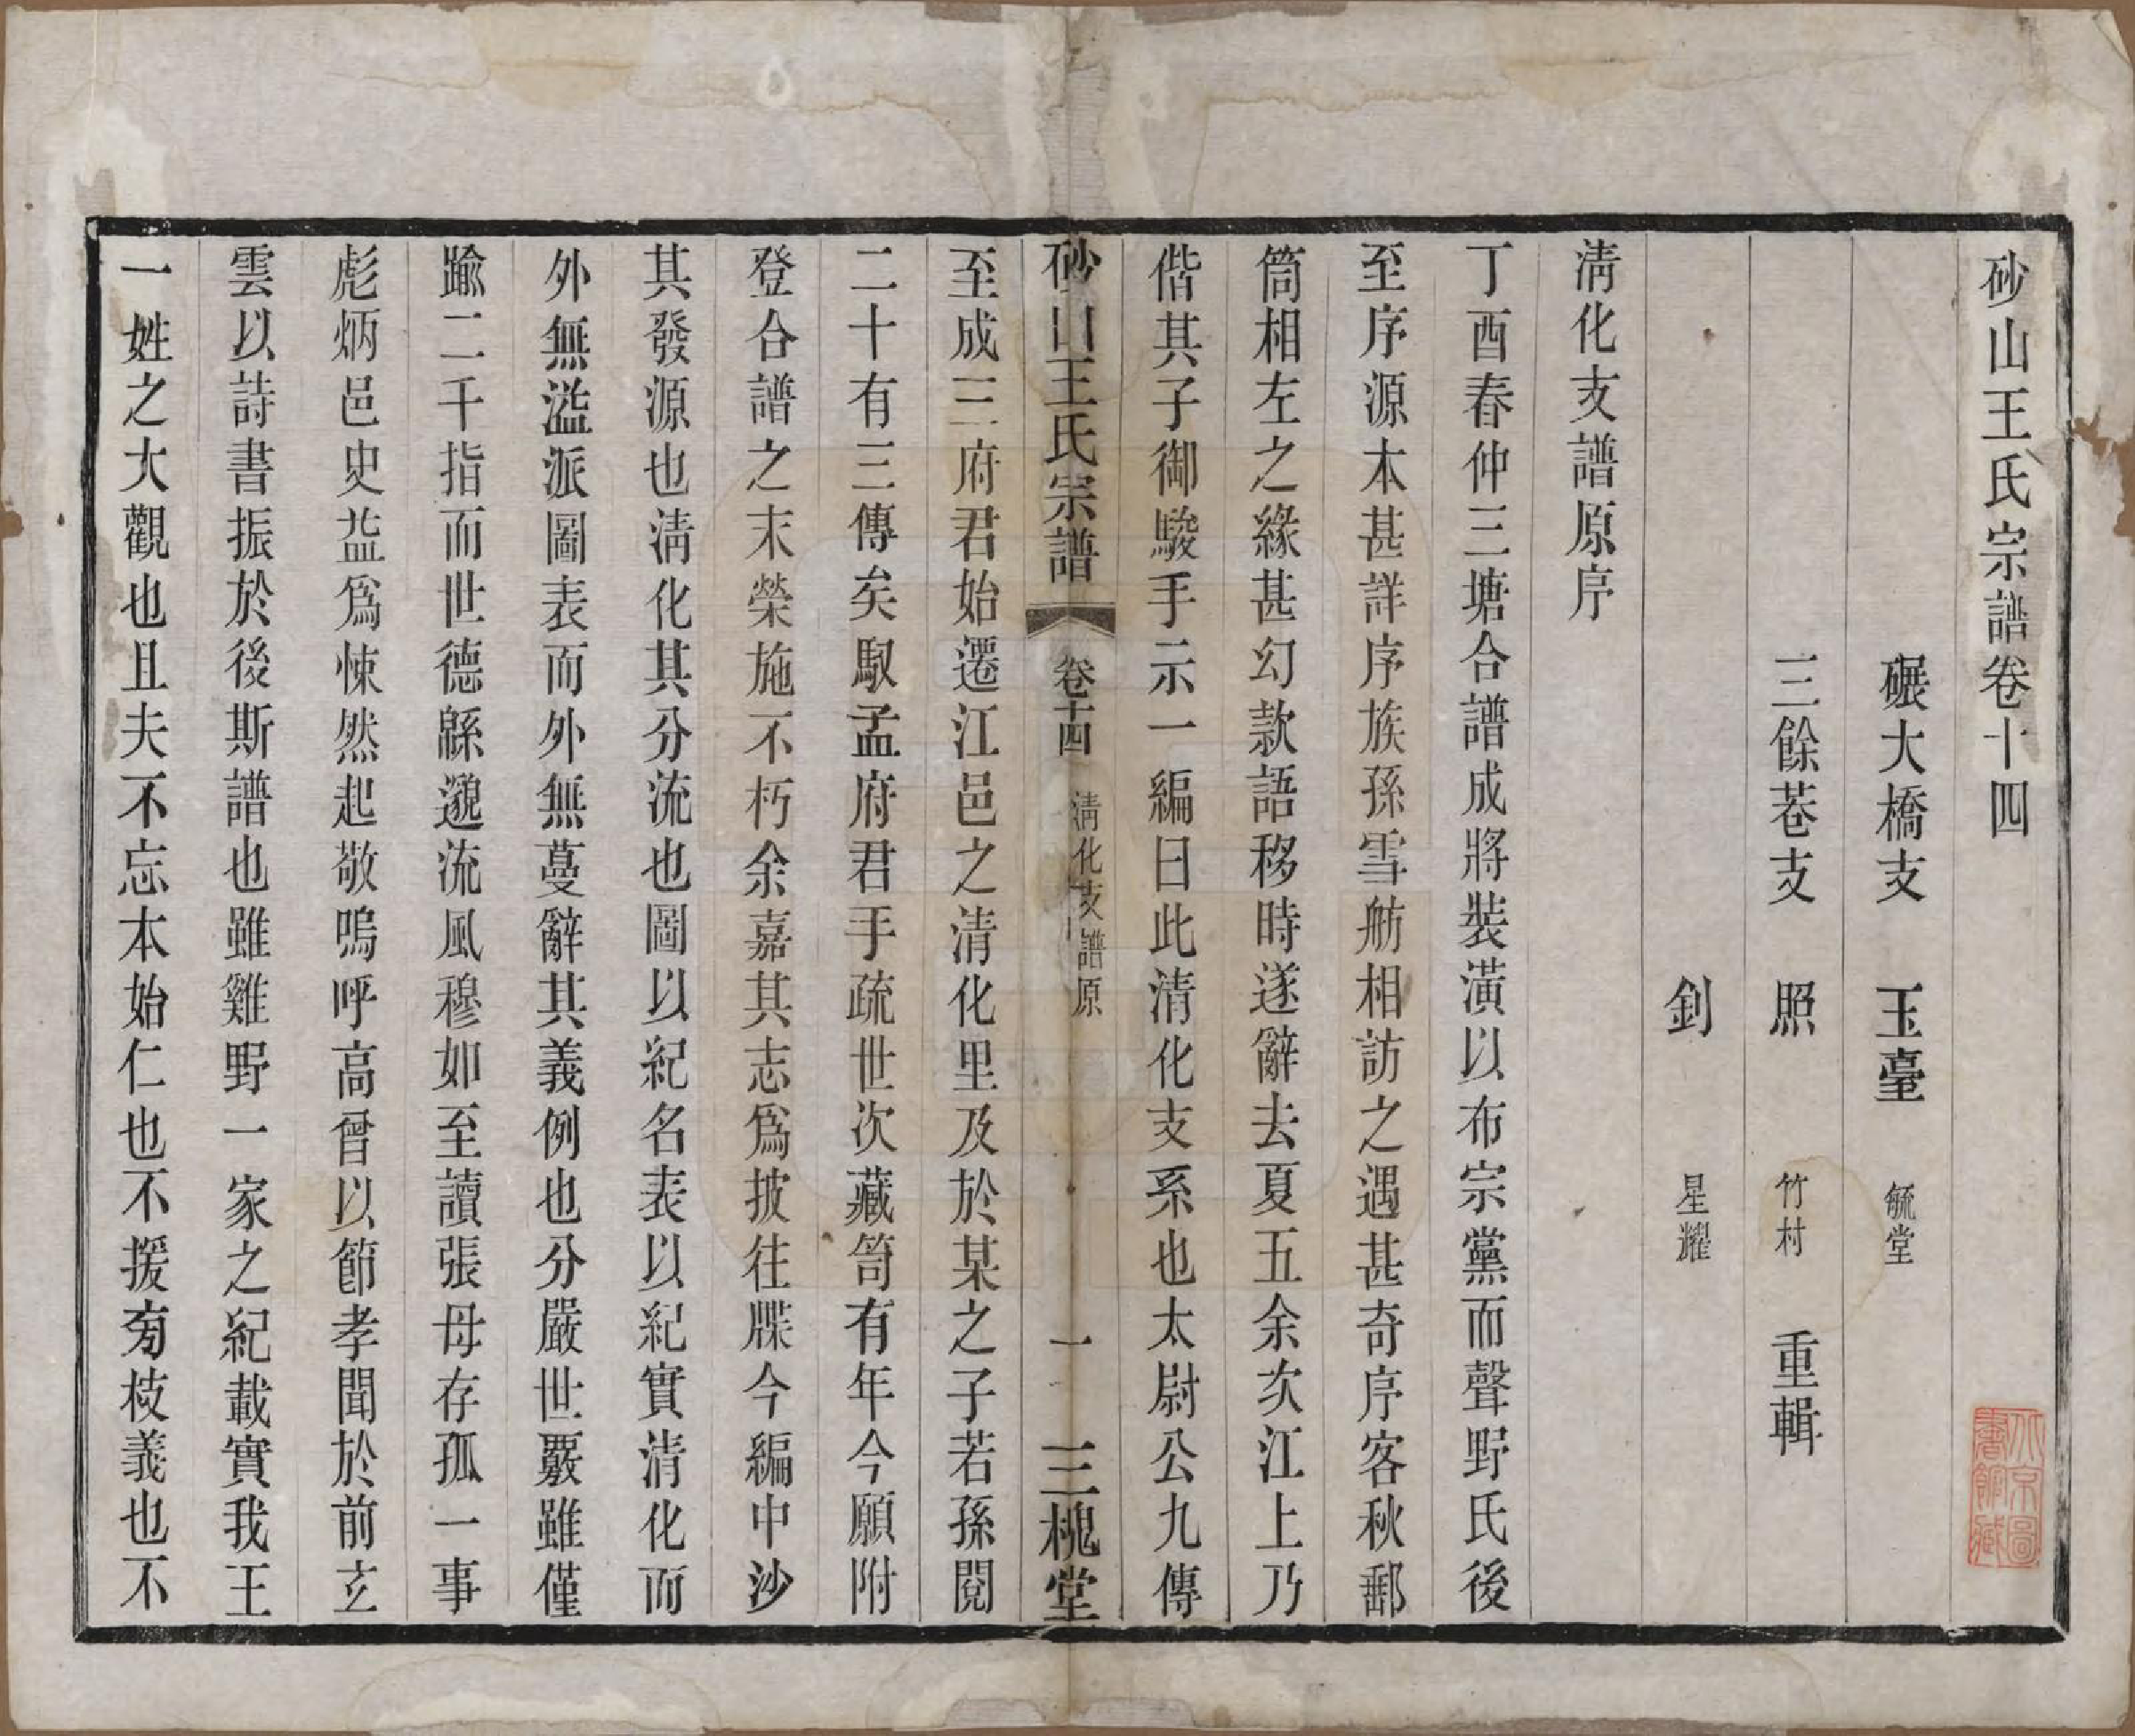 砂山王氏宗譜卷十四
碾大橋支　玉臺　毓堂
三餘菴支　照　竹村　重輯
釗　星耀
淸化支譜原序
丁酉春仲三塘合譜成將裝潢以布宗黨而聲野氏後
至序源本甚詳序族孫雪舫相訪之遇甚奇序客秋郵
筒相左之緣甚幻款語移時遂辭去夏五余次江上乃
偕其子御駿手示一編曰此清化支系也太尉公九傳
砂山王氏宗譜　卷十四　淸化支譜原　一　三槐堂
至成三府君始遷江邑之清化里及於某之子若孫閱
二十有三傳矣馭孟府君手疏世次藏笥有年今願附
登合譜之末榮施不朽余嘉其志爲披往牒今編中沙
其發源也淸化其分流也圖以紀名表以紀實清化而
外無濫派圖表而外無蔓辭其義例也分嚴世覈雖僅
踰二千指而世德緜邈流風穆如至讀張母存孤一事
彪炳邑史益爲悚然起敬嗚呼高曾以節孝聞於前玄
雲以詩書振於後斯譜也雖雞野一家之紀載實我王
一姓之大觀也且夫不忘本始仁也不援旁枝義也不
北京圖書館藏